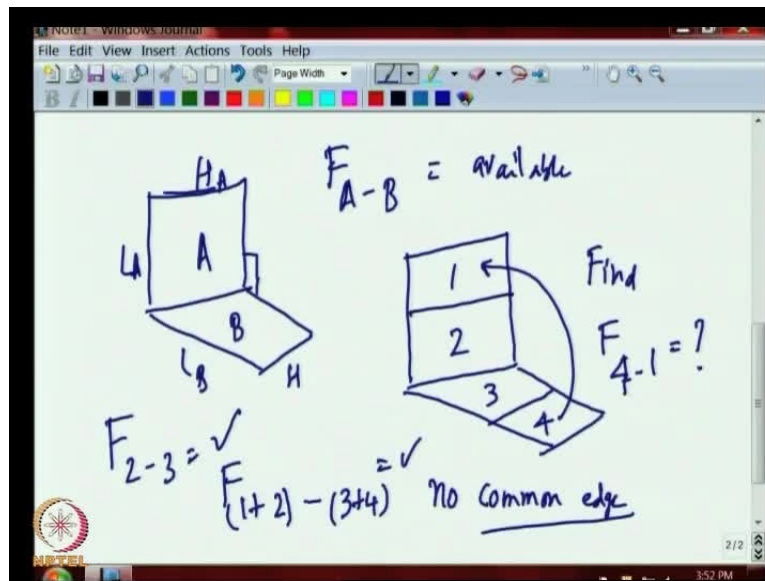 Note1 - Windows Journal
File Edit View Insert Actions Tools Help
Page Width
B I
H_A
F_{A-B} = available
L_A
A
B
L_B
H
1
2
3
4
Find
F_{4-1} = ?
F_{2-3} = ✓
F_{(1+2)-(3+4)} = ✓
No common edge
2/2
NPTEL
3:52 PM